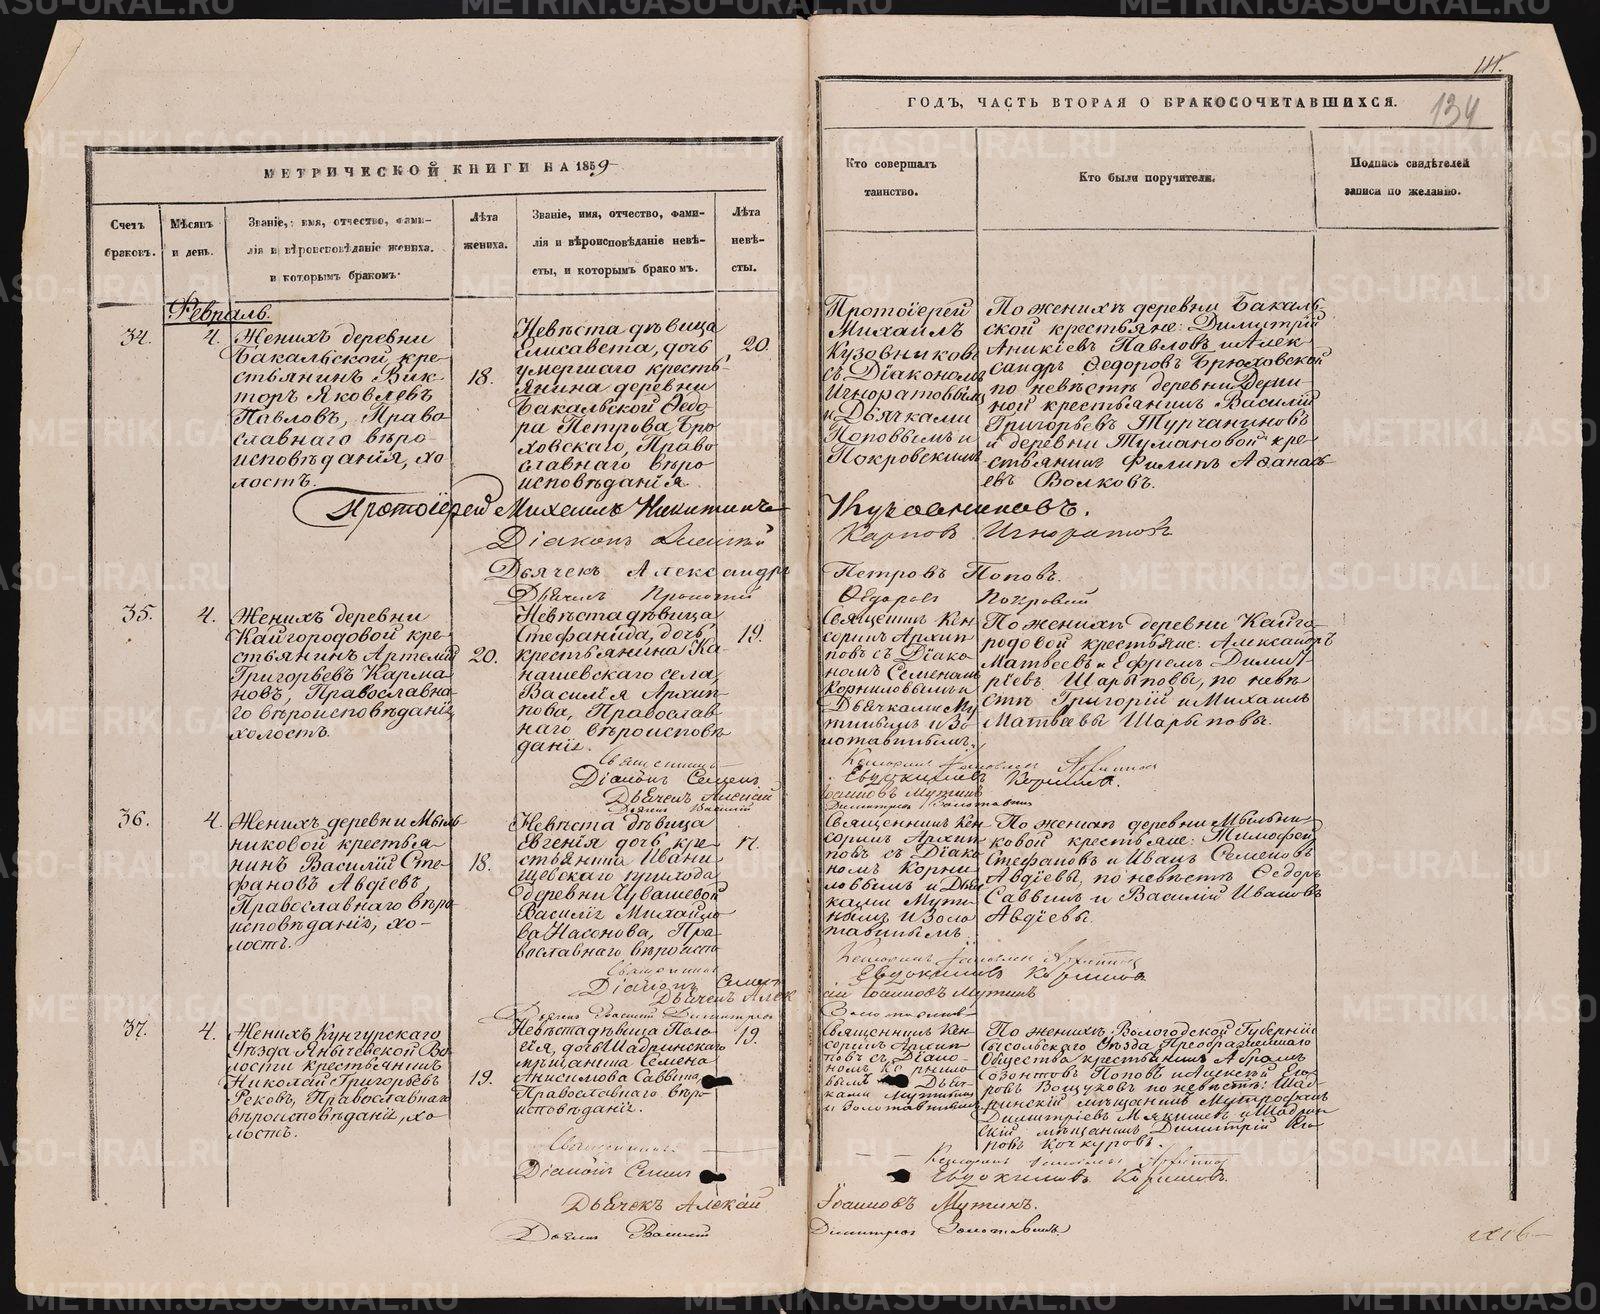 111.
134
МЕТРИЧЕСКОЙ КНИГИ НА 1859
ГОДЪ, ЧАСТЬ ВТОРАЯ О БРАКОСОЧЕТАВШИХСЯ.
Счетъ
браковъ.
Мѣсяцъ
и день.
Званіе, имя, отчество, фами-
лія и вѣроисповѣданіе жениха.
и которымъ бракомъ.
Лѣта
жениха.
Званіе, имя, отчество, фами-
лія и вѣроисповѣданіе невѣ-
сты, и которымъ бракомъ.
Лѣта
невѣ-
сты.
Кто совершалъ
таинство.
Кто были поручители.
Подпись свидѣтелей
записи по желанію.
Февраль.
34.
4.
Женихъ деревни
Бакальской кре-
стьянинъ Вик-
торъ Яковлевъ
Павловъ, Право
славнаго вѣро-
исповѣданія, хо
лостъ.
18.
Невѣста дѣвица
Елисавета, дочь
умершаго кресть-
янина деревни
Бакальской Ѳедо
ра Петрова Брю
ховскаго, Право
славнаго вѣро
исповѣданія.
20.
Протоіерей
Михаилъ
Кузовниковъ
съ Діакономъ
Игноратовымъ
и Дьячками
Поповымъ и
Покровскимъ
По женихѣ деревни Бакаль
ской крестьяне: Димитрій
Аникіевъ Павловъ и Алек
сандръ Ѳедоровъ Брюховской
по невѣстѣ деревни Дерми
ной крестьянинъ Василій
Григорьевъ Турчаниновъ
и деревни Тумановой кре-
стьянинъ Филипъ Аѳанась
евъ Волковъ.
Протоіерей Михаилъ Никитинъ Кузовниковъ.
Діаконъ Карповъ Игноратовъ
Дьячекъ Александръ Петровъ Поповъ.
Ѳедоровъ Покровскій
35.
4.
Женихъ деревни
Кайгородовой кре-
стьянинъ Артемій
Григорьевъ Карма
новъ, Православна
го вѣроисповѣданія,
холостъ.
20.
Невѣста дѣвица
Стефанида, дочь
крестьянина Ка-
нашевскаго села,
Василія Архип-
пова, Православ
наго вѣроисповѣ
данія.
19.
Священникъ Кен
соринъ Архип
повъ съ Діако
номъ Семеномъ
Корниловымъ и
Дьячками Му
тинымъ и Зо
лотавинымъ.
По женихѣ деревни Кайго
родовой крестьяне: Александръ
Матвеевъ и Ефремъ Димит
ріевъ Шарыповы, по невѣ
стѣ Григорій и Михаилъ
Матвеевы Шарыповы.
Священникъ Кенсоринъ Архиппов
Діаконъ Семенъ Евдокимовъ Корниловъ.
Дьячекъ Алексій Іоанновъ Мутинъ
Василій Димитріев Золотавинъ
36.
4.
Женихъ деревни Мыль
никовой крестья-
нинъ Василій Сте
фановъ Авдіевъ,
Православнаго вѣро
исповѣданія, хо-
лостъ.
18.
Невѣста дѣвица
Евгенія дочь кре-
стьянина Ивани
щевскаго прихода
деревни Чувашевой
Василія Михайло
ва Насонова, Пра
вославнаго вѣроиспо
17.
Священникъ Кен
соринъ Архип
повъ съ Діако
номъ Корни
ловымъ и Дья
чками Мути
нымъ и Золо
тавинымъ.
По женихѣ деревни Мыльни-
ковой крестьяне: Тимофей
Стефановъ и Иванъ Семеновъ
Авдіевы, по невѣстѣ Ѳедоръ
Саввинъ и Василій Ивановъ
Авдіевы.
Священникъ Кенсоринъ Архиппов
Діаконъ Семенъ Евдокимовъ Корниловъ
Дьячекъ Алексій Іоанновъ Мутинъ
Василій Димитріев Золотавинъ
37.
4.
Женихъ Кунгурскаго
Уѣзда Янычевской Во
лости крестьянинъ
Николай Григорьевъ
Рековъ, Православнаго
вѣроисповѣданія, хо
лостъ.
19.
Невѣста дѣвица Пела
гія, дочь Шадринскаго
мѣщанина Семена
Анисимова Саввина
Православнаго вѣро
исповѣданія.
19.
Священникъ Кен
соринъ Архип
повъ съ Діако-
номъ Корнило
вымъ Дья-
чками Мутинымъ
и Золотавинымъ
По женихѣ Вологодской Губерніи
Сысольскаго Уѣзда Преображенскаго
Общества крестьянинъ Абрамъ
Созонтовъ Поповъ и Алексѣй Его
ровъ Вощуковъ по невѣстѣ: Шад-
ринскіи мѣщанинъ Митрофанъ
Димитріевъ Мякишевъ и Шадрин
скій мѣщанинъ Димитрій Его
ровъ Кочкуровъ.
Священникъ Кенсоринъ Архиппов
Діаконъ Семенъ Евдокимовъ Корниловъ.
Дьячекъ Алексій Іоанновъ Мутинъ.
Дьячекъ Василій Димитріев Золотавинъ
METRIKI.GASO-URAL.RU